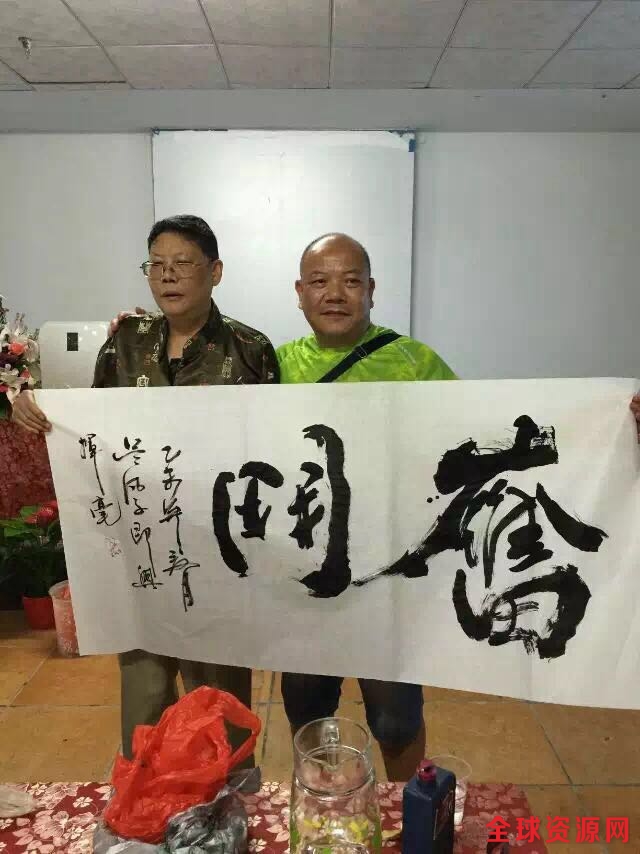 奮鬥
乙未年月
风子即興
揮毫
全球资源网